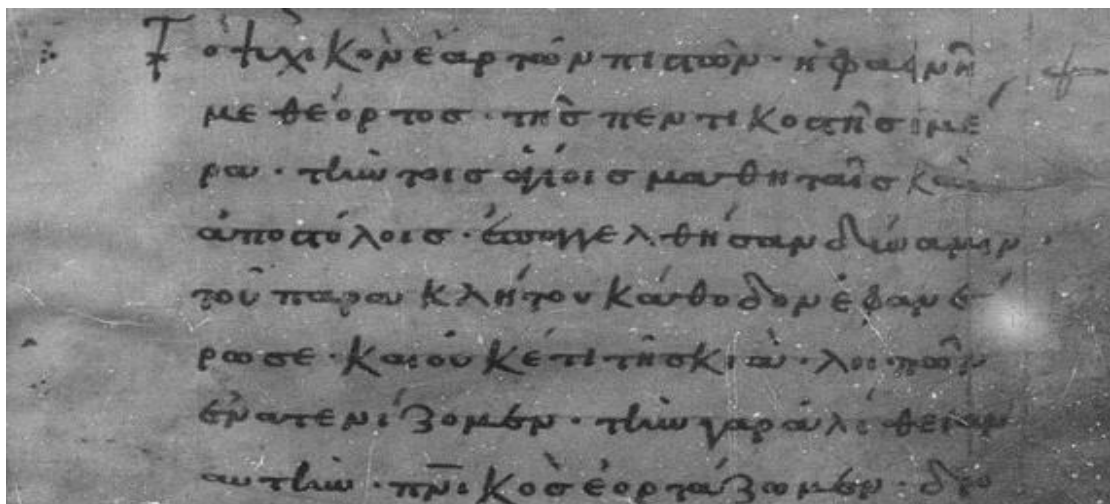 Το ψυχικὸν ἔαρ τῶν πιστῶν· ἡ φαινὴ
μεθέορτος· τῆς πεντικοστῆς ἡμέ
ρα· τὴν τοῖς ἁγίοις μαθηταῖς καὶ
ἀποστόλοις· ἐπαγγελθήσαν δύναμιν·
τοῦ παρακλήτου κάθοδον ἐφανέ
ρωσε· καὶ οὐκέτι τῆ σκιᾶ· λοιπὸν
ἐνατενίζομεν· τὴν γὰρ ἀλίθειαν
αυτὴν· πνικὸς ἑορτάζωμεν· διο